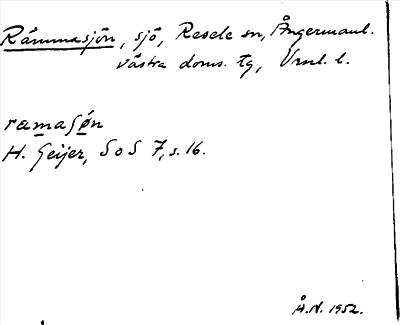 Rämmasjön, sjö, Resele sn, Ångermanl.
västra doms. tg, Vrnl. l.
ramasǿn
H. Geijer, SoS 7, s. 16.
Å.N. 1952.